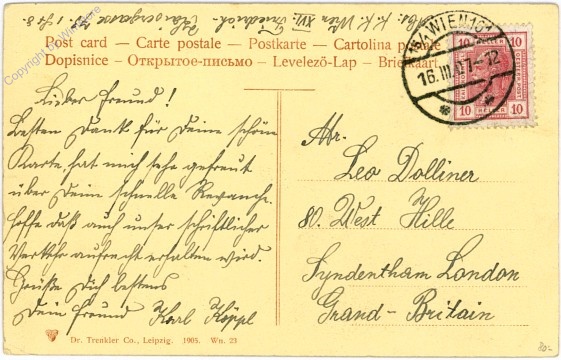 Post card — Carte postale — Postkarte — Cartolina postale
Dopisnice — Открытое-письмо — Levelező-Lap — Briefkaart
16/1 WIEN 101
16.III.07-12
10 10
HELLER
Lieber Freund!
Besten Dank für Deine schöne
Karte, hat mich sehr gefreut
über Deine schnelle Revanch.
Hoffe daß auch unser schriftlicher
Verkehr aufrecht erhalten wird.
Grüße Dich bestens
Dein Freund Karl Köppl
Adr.
Leo Dolliner
80. West Hille
Syndentham London
Grand-Britain
Dr. Trenkler Co., Leipzig. 1905. Wn. 23